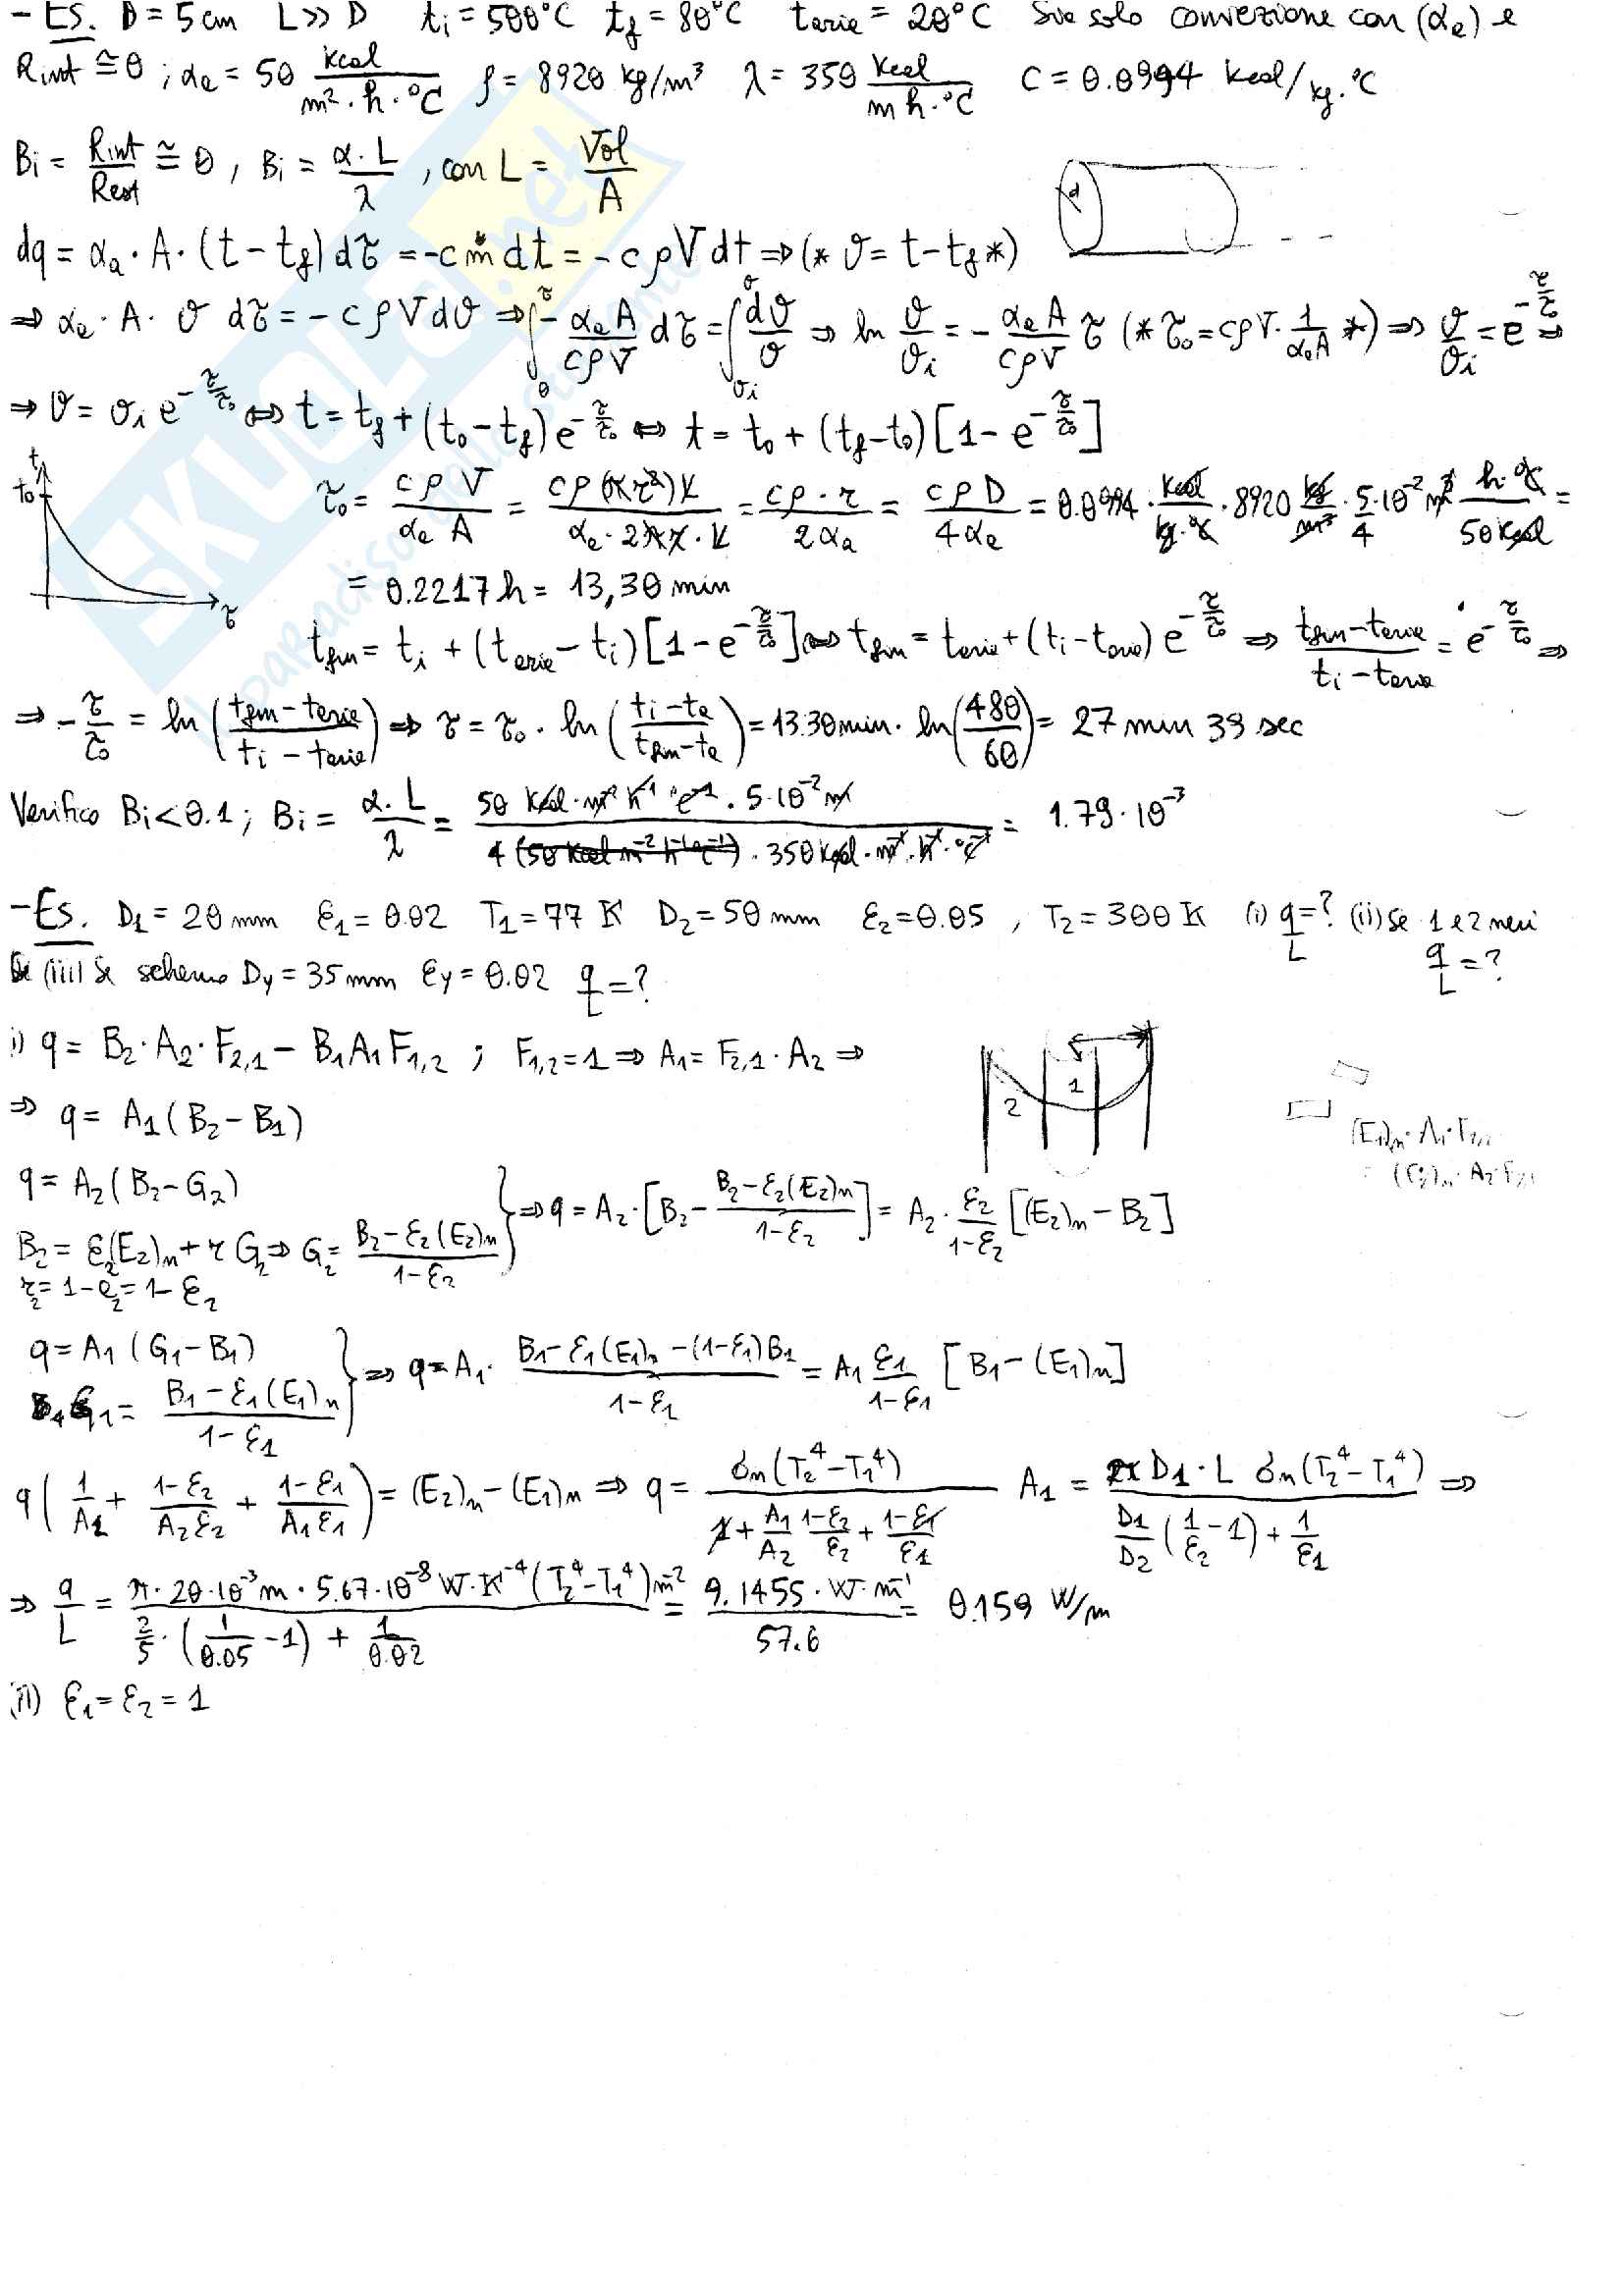 - Es. D = 5 cm L >> D ti = 500°C tf = 80°C taria = 20°C Sia solo convezione con (αe) e
Rint ≅ 0 ; αe = 50 kcal/(m²·h·°C) ρ = 8920 kg/m³ λ = 350 kcal/(m h·°C) C = 0.0994 kcal/kg·°C
Bi = Rint/Rest ≅ 0 , Bi = α·L/λ , con L = Vol/A
d
dq = αa·A·(t - tf)dτ = -c m dt = -cρV dt ⇒ (* ϑ = t - tf *)
⇒ αe·A·ϑ dτ = -cρV dϑ ⇒ ∫₀^τ - αe A/(cρV) dτ = ∫_ϑi^ϑ dϑ/ϑ ⇒ ln ϑ/ϑi = - αe A/(cρV) τ (* τ₀ = cρV·1/(αe A) *) ⇒ ϑ/ϑi = e^(-τ/τ₀) ⇒
⇒ ϑ = ϑi e^(-τ/τ₀) ⇔ t = tf + (t₀ - tf) e^(-τ/τ₀) ⇔ t = t₀ + (tf - t₀)[1 - e^(-τ/τ₀)]
t
t₀
τ
τ₀ = cρV/(αe A) = cρ(πr²)L/(αe·2πr·L) = cρ·r/(2αa) = cρD/(4αe) = 0.0994·kcal/(kg·°C)·8920 kg/m³·5/4·10⁻² m³ h·°C/(50 kcal) =
= 0.2217 h = 13,30 min
tfin = ti + (taria - ti)[1 - e^(-τ/τ₀)] ⇔ tfin = taria + (ti - taria) e^(-τ/τ₀) ⇒ (tfin - taria)/(ti - taria) = e^(-τ/τ₀) ⇒
⇒ -τ/τ₀ = ln((tfin - taria)/(ti - taria)) ⇒ τ = τ₀·ln((ti - ta)/(tfin - ta)) = 13.30 min·ln(480/60) = 27 min 39 sec
Verifico Bi < 0.1 ; Bi = α·L/λ = 50 kcal·m⁻² h⁻¹ °C⁻¹·5·10⁻² m/(4 (50 kcal m⁻² h⁻¹ °C⁻¹)·350 kcal·m⁻¹·h⁻¹·°C⁻¹) = 1.79·10⁻³
- Es. D₁ = 20 mm ε₁ = 0.02 T₁ = 77 K D₂ = 50 mm ε₂ = 0.05 , T₂ = 300 K (i) q/L = ? (ii) se 1 e 2 neri q/L = ?
(iii) Se schermo Dy = 35 mm εy = 0.02 q/L = ?
i) q = B₂·A₂·F₂,₁ - B₁A₁F₁,₂ ; F₁,₂ = 1 ⇒ A₁ = F₂,₁·A₂ ⇒
2 1
⇒ q = A₁(B₂ - B₁)
q = A₂(B₂ - G₂)
B₂ = ε₂(E₂)n + r G₂ ⇒ G₂ = (B₂ - ε₂(E₂)n)/(1 - ε₂) } ⇒ q = A₂·[B₂ - (B₂ - ε₂(E₂)n)/(1 - ε₂)] = A₂·ε₂/(1 - ε₂) [(E₂)n - B₂]
r₂ = 1 - a₂ = 1 - ε₂
q = A₁(G₁ - B₁)
G₁ = (B₁ - ε₁(E₁)n)/(1 - ε₁) } ⇒ q = A₁·(B₁ - ε₁(E₁)n - (1 - ε₁)B₁)/(1 - ε₁) = A₁ ε₁/(1 - ε₁) [B₁ - (E₁)n]
q(1/A₁ + (1 - ε₂)/(A₂ε₂) + (1 - ε₁)/(A₁ε₁)) = (E₂)n - (E₁)n ⇒ q = σn(T₂⁴ - T₁⁴)/(1 + A₁/A₂ (1 - ε₂)/ε₂ + (1 - ε₁)/ε₁) A₁ = πD₁·L σn(T₂⁴ - T₁⁴)/(D₁/D₂(1/ε₂ - 1) + 1/ε₁) ⇒
⇒ q/L = π·20·10⁻³ m·5.67·10⁻⁸ W·K⁻⁴(T₂⁴ - T₁⁴) m⁻²/(2/5·(1/0.05 - 1) + 1/0.02) = 9.1455·W·m⁻¹/57.6 = 0.159 W/m
ii) ε₁ = ε₂ = 1
SKUOLA.net
il paradiso dello studente